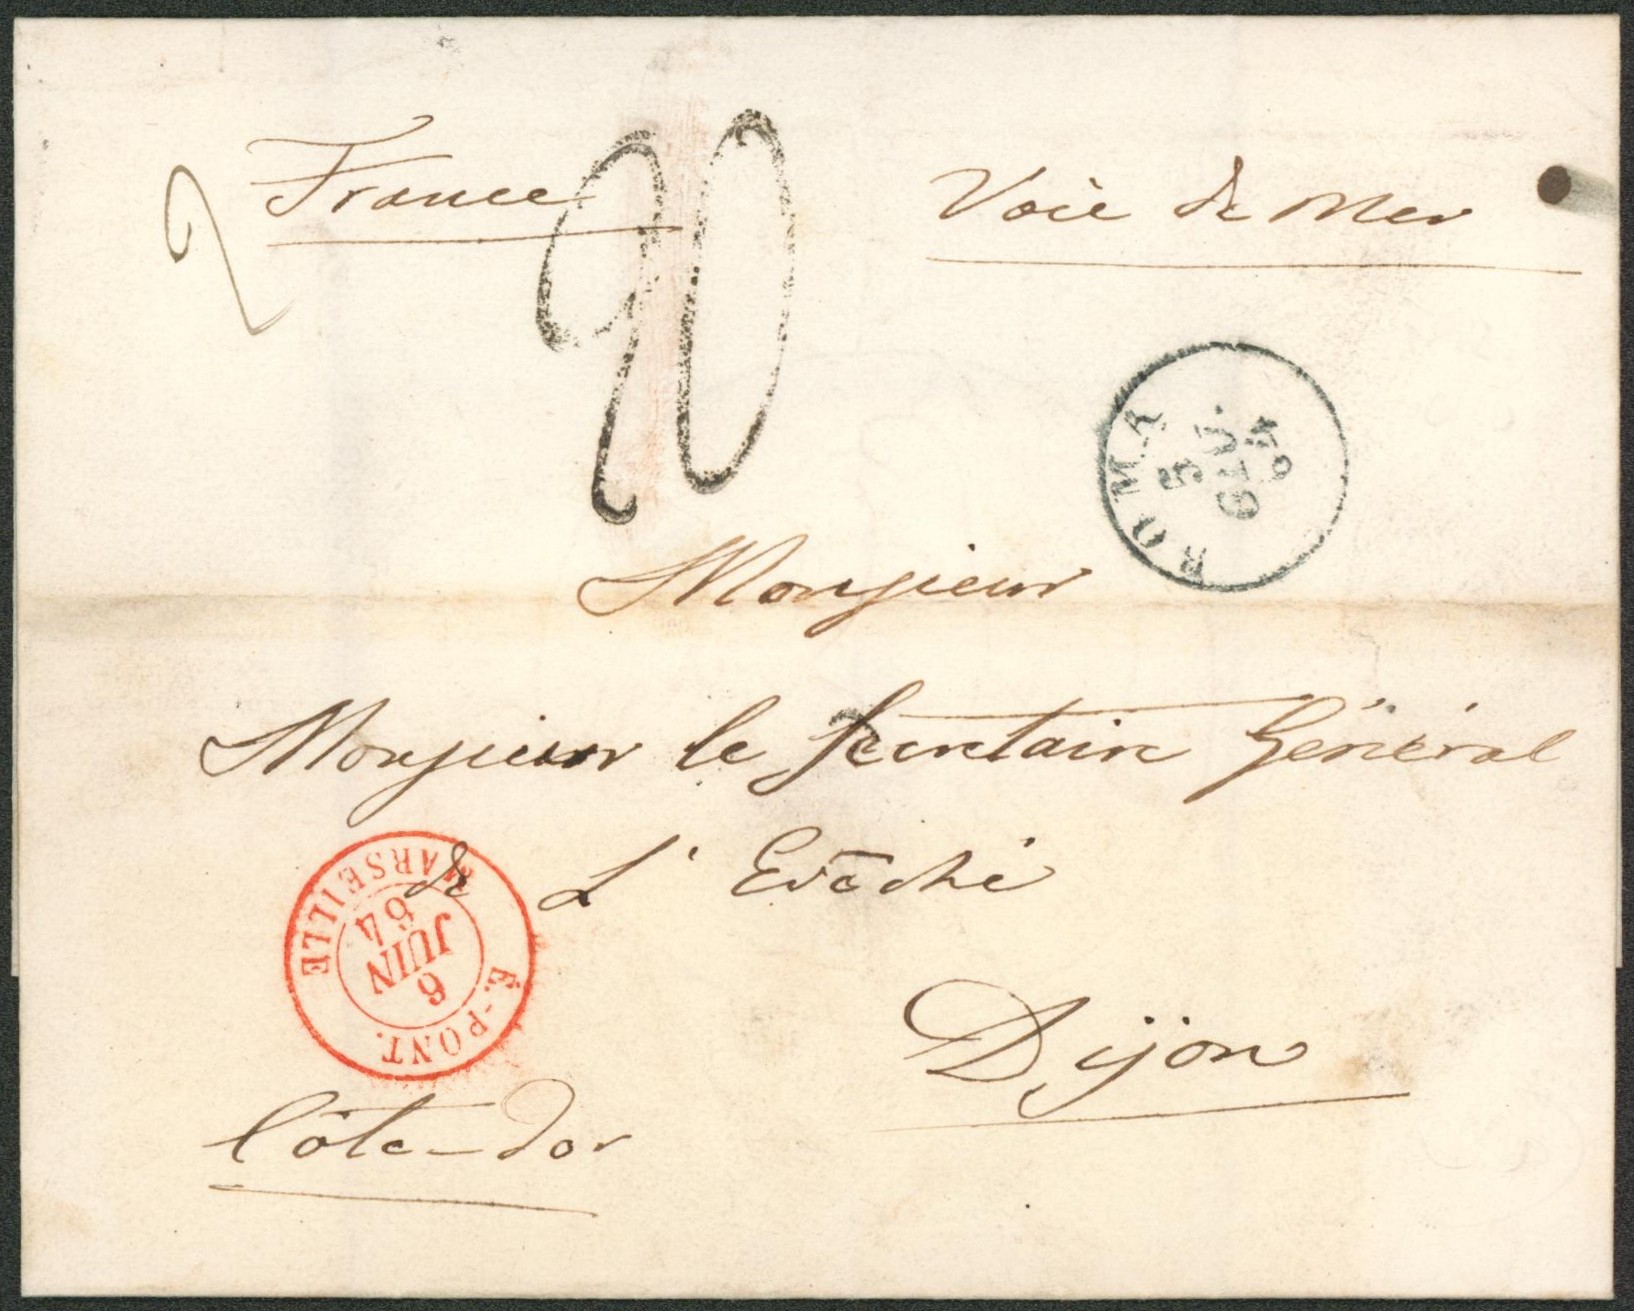 France
Voie de Mer
2
90
ROMA
5
GIU.
64
Monsieur
Monsieur le Secretaire Général
de L'Evêché
MARSEILLE
6
JUIN
64
É.-PONT.
Dijon
Côte-dor